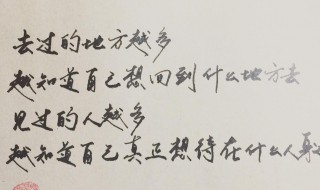 去过的地方越多
越知道自己想回到什么地方去
见过的人越多
越知道自己真正想待在什么人身